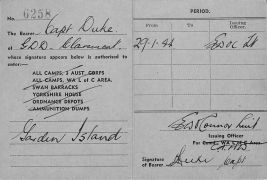 No. 6258
The Bearer Capt Duke
of G.D.D. Claremont
whose signature appears below is authorised to
enter:—
ALL CAMPS, 3 AUST. CORPS
ALL CAMPS, WA L of C AREA.
SWAN BARRACKS
YORKSHIRE HOUSE
ORDNANCE DEPOTS
AMMUNITION DUMPS
Garden Island
PERIOD.
From To Issuing Officer.
29-1-44
Issuing Officer
For Camps, WA L of C Area
Signature of Bearer Duke Capt